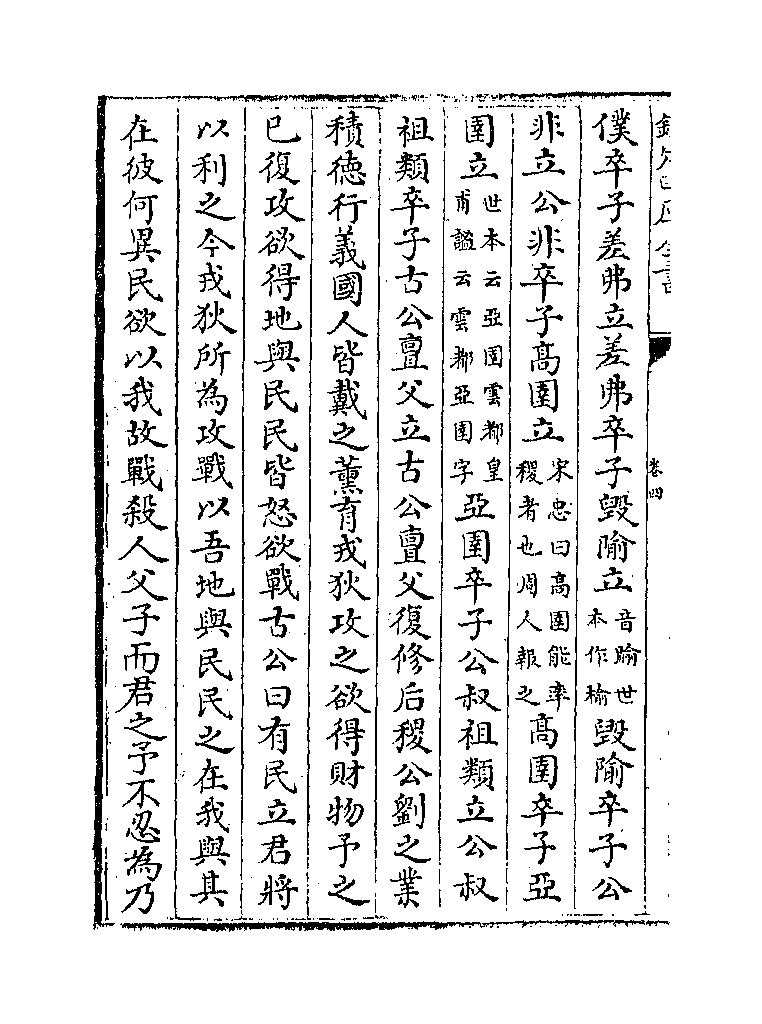 卷四
僕卒子差弗立差弗卒子毁隃立音踰世本作榆毁隃卒子公
非立公非卒子髙圉立宋忠曰髙圉能率稷者也周人報之髙圉卒子亞
圉立世本云亞圉雲都皇甫謐云雲都亞圉字亞圉卒子公叔祖類立公叔
祖類卒子古公亶父立古公亶父復修后稷公劉之業
積徳行義國人皆戴之薰育戎狄攻之欲得財物予之
已復攻欲得地與民民皆怒欲戰古公曰有民立君將
以利之今戎狄所為攻戰以吾地與民民之在我與其
在彼何異民欲以我故戰殺人父子而君之予不忍為乃